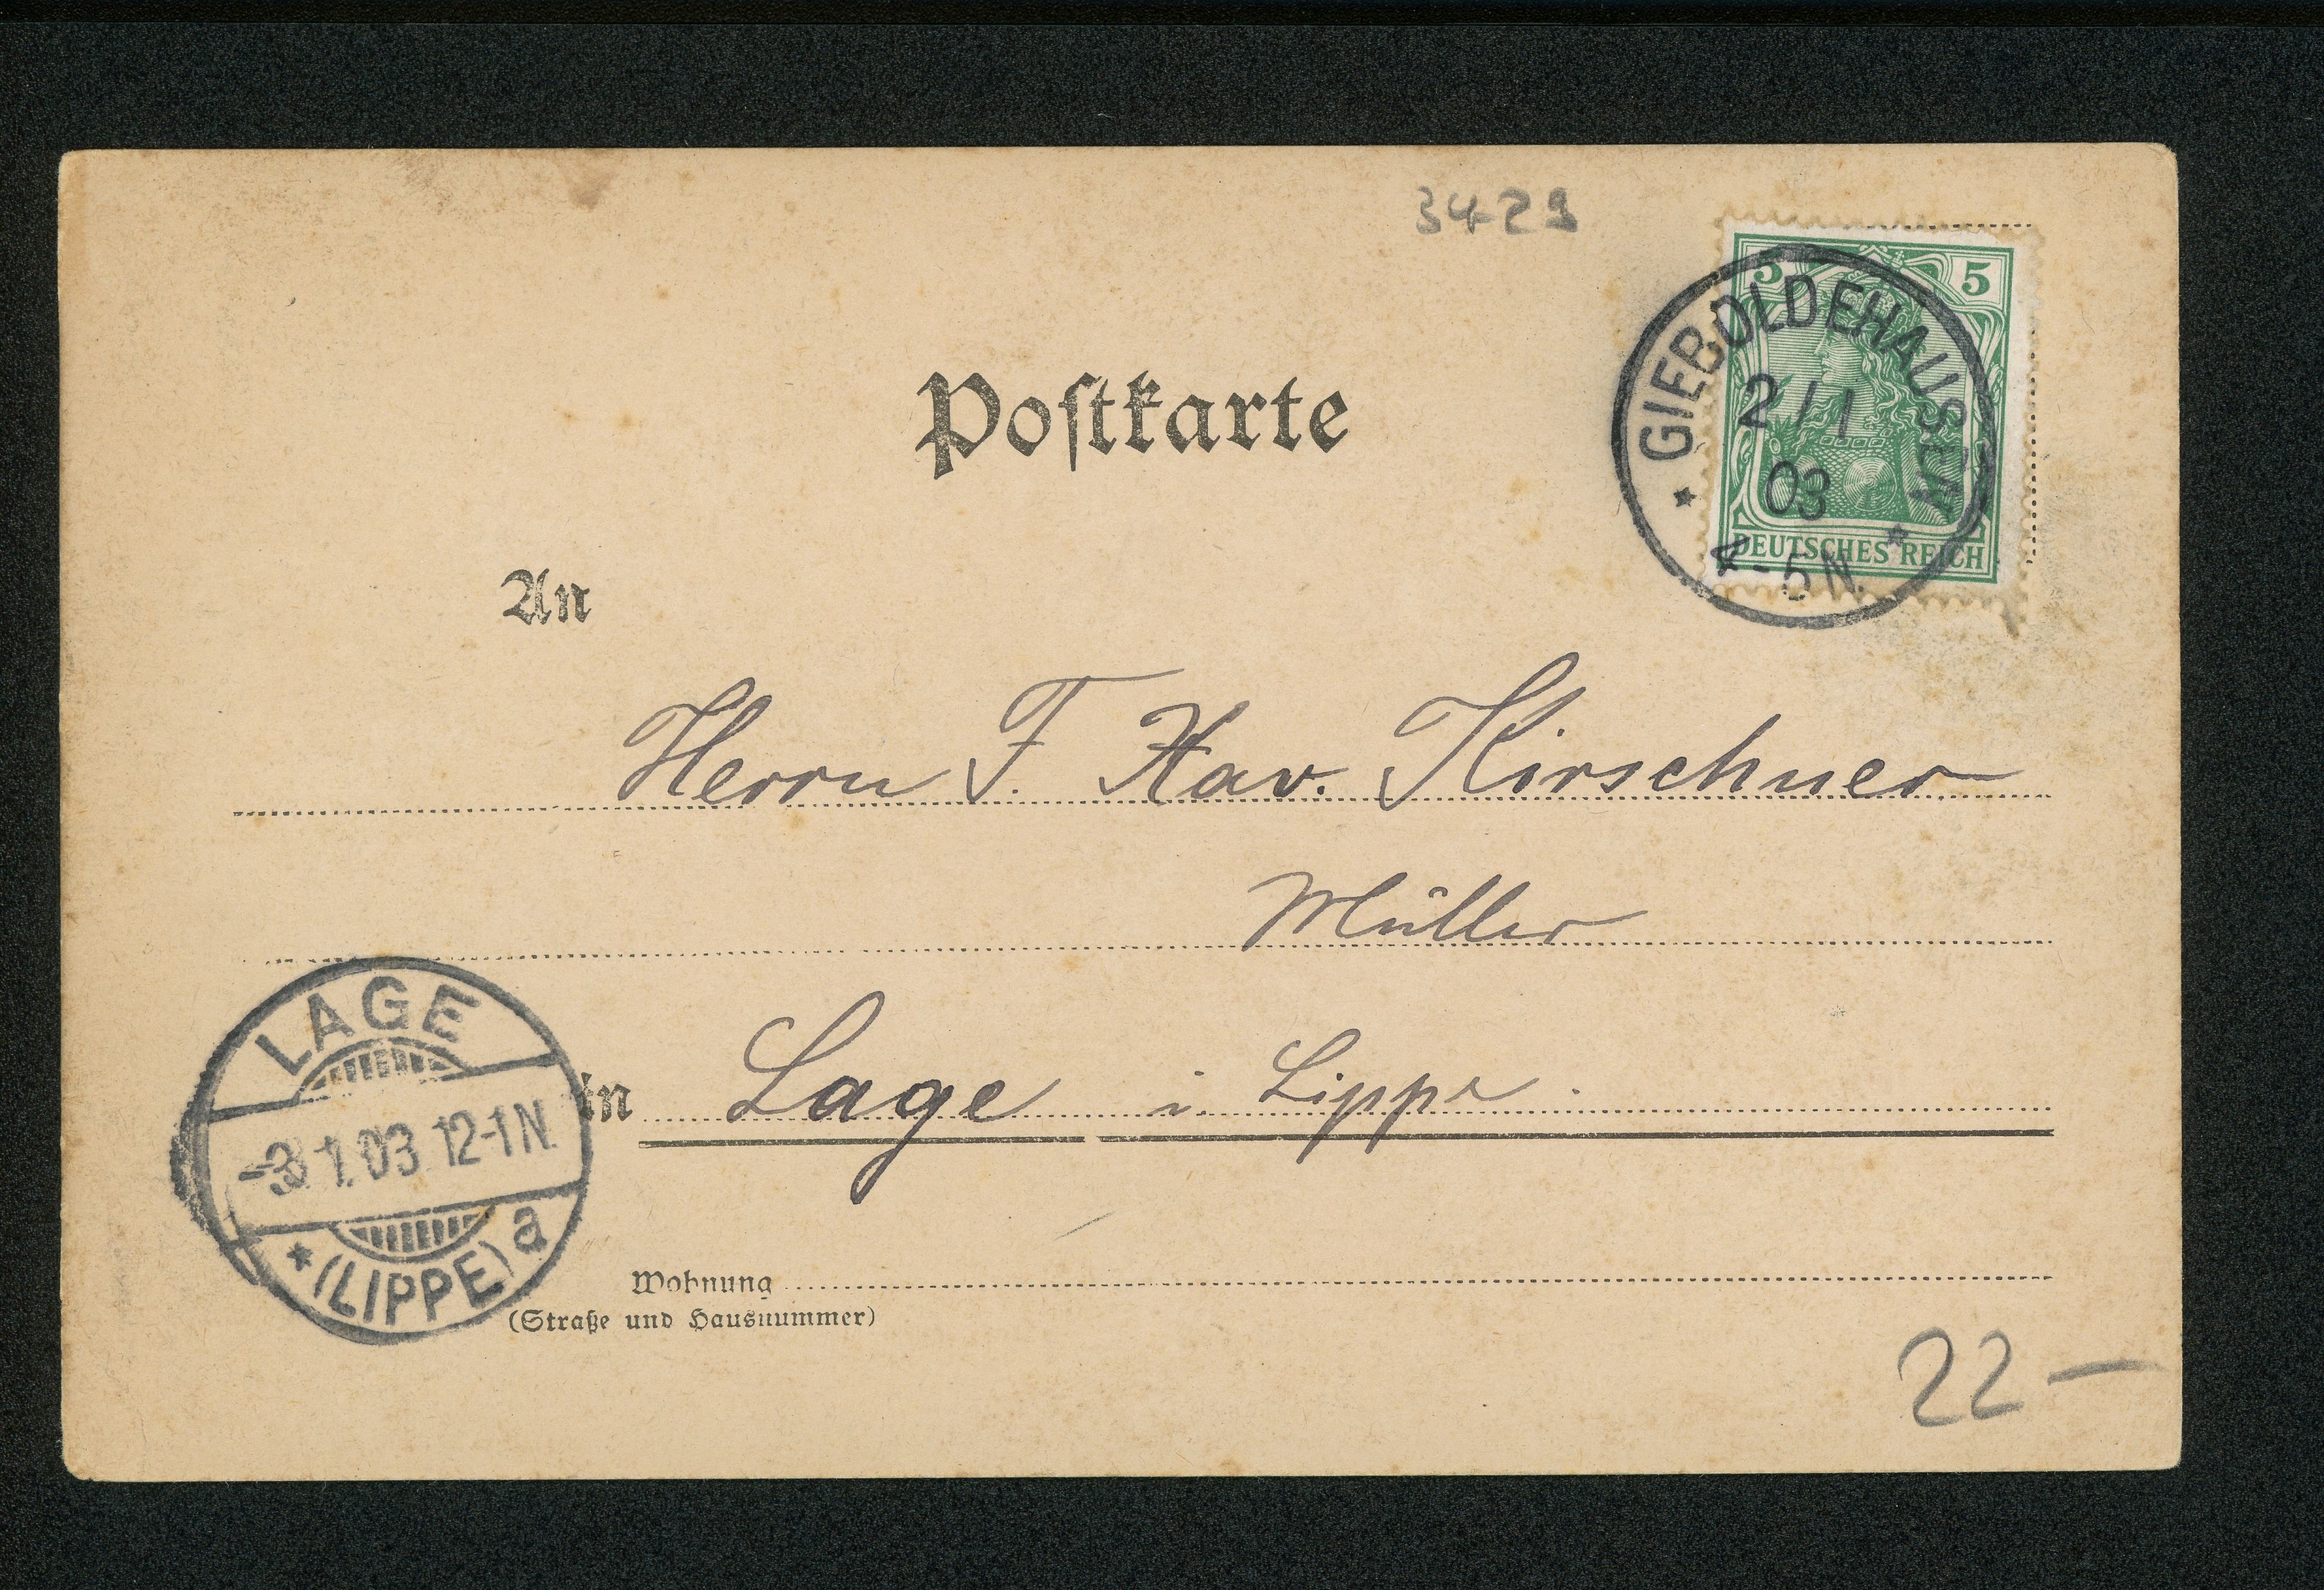 3429
5 5
GIEBOLDEHAUSEN
2/1
03
4-5N.
DEUTSCHES REICH
Postkarte
An
Herrn F. Xav. Kirschner
Müller
LAGE
-3.1.03.12-1N.
* (LIPPE) a
in Lage i. Lippe.
Wohnung
(Straße und Hausnummer)
22 –